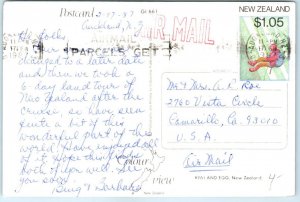 Postcard
2-17-87
Auckland, N.Z.
AIR MAIL
NEW ZEALAND
$1.05
PARCELS GET
Hi folks,
changed to a later date
and then we took a
6 day land tour of
New Zealand after the
cruise, so have seen
quite a bit of this
wonderful part of the
world. Have enjoyed all
of it. Hope things
both of you well. See
you soon.
Bing & Barbara
Mr & Mrs. A. R. Roe
2760 Vista Circle
Camarillo, CA.
U.S.A.
Air Mail
VIEW
KIWI AND EGG, New Zealand